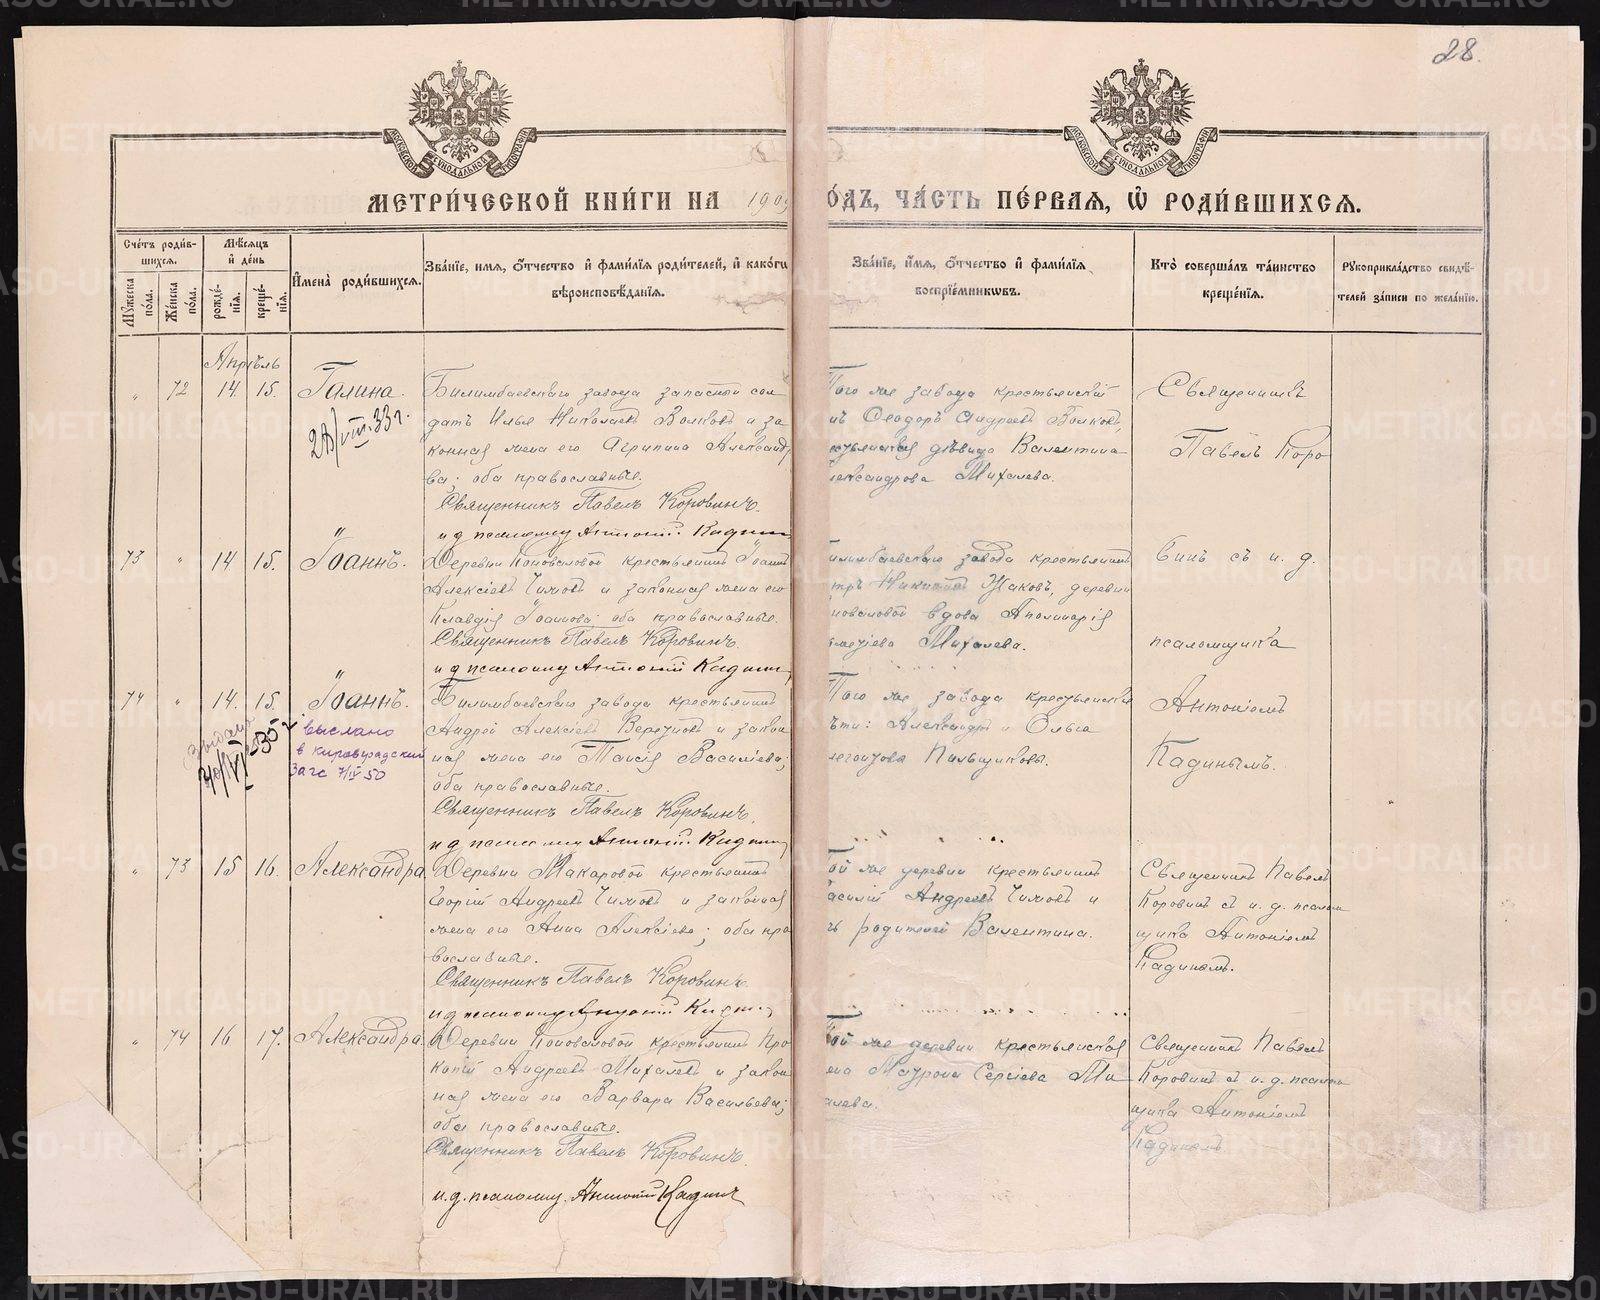 28.
МЕТРИ́ЧЕСКОЙ КНИ́ГИ НА 1909
ОДЪ, ЧА́СТЬ ПЕ́РВАЯ, Ѿ РОДИ́ВШИХСЯ.
Сче́тъ роди́в-
шихся.
Мѣ́сяцъ
и де́нь
Мꙋжеска по́ла.
Же́нска по́ла.
рожде́-нїѧ.
креще́-нїѧ.
Имена̀ роди́вшихся.
Зва́нїе, имя, о́тчество и фами́лїя роди́телей, и како́гѡ
вѣроисповѣ́данїя.
Зва́нїе, и́мя, о́тчество и фами́лїя
воспрїе́мникѡвъ.
Кто̀ соверша́лъ та́инство
креще́нїя.
Рꙋкоприкла́дство свидѣ́-
телей за́писи по жела́нїю.
Апрѣль
" 72 14. 15. Галина.
28/VIII 33 г.
Билимбаевскаго завода запасный сол
датъ Илья Николаевъ Волковъ и за
конная жена его Агрипина Александр
ва; оба православные.
Священникъ Павелъ Коровинъ.
и д псаломщ Антоній Кадин
Того же завода крестьянскій
Ѳеодоръ Андреевъ Волковъ,
дѣвица Валентина
лександрова Михалева.
Священникъ
Павелъ Коро
73 " 14 15. Іоаннъ.
Деревни Коноваловой крестьянинъ Іоаннъ
Алексіевъ Чижовъ и законная жена его
Клавдія Іоаннова; оба православные.
Священникъ Павелъ Коровинъ.
и д псаломщ Антоній Кадин
илимбаевскаго завода крестьянинъ
Жаковъ, деревни
новаловой вдова Аполинарія
Михалева.
винъ съ и. д.
псаломщика
74 " 14. 15. Іоаннъ.
выслано
в Кировградский
Загс 7/IV 50
Билимбаевскаго завода крестьянинъ
Андрей Алексіевъ и закон
ная жена его Таисія Василіева;
оба православные.
Священникъ Павелъ Коровинъ.
и д псаломщ Антоній Кадин
Того же завода крестьянскія
ѣти: Александръ и Ольга
Пильщиковы.
Антоніемъ
Кадинымъ.
" 73 15 16. Александра.
Деревни Макаровой крестьянинъ
Георгій Андреевъ Чижовъ и законная
жена его Анна Алексіева; оба пра
вославные.
Священникъ Павелъ Коровинъ
и д псаломщ Антоній Кадин
ой же деревни крестьянинъ
асилій Андреевъ Чижовъ и
родителей Валентина.
Священникъ Павелъ
Коровинъ съ и. д. псалом
щика Антоніемъ
Кадинымъ.
" 74 16 17. Александра.
Деревни Коноваловой крестьянинъ Про
копій Андреевъ Михалевъ и закон
ная жена его Варвара Васильева;
оба православные.
Священникъ Павелъ Коровинъ.
и. д. псаломщ. Антоній Кадинъ
ой же деревни крестьянская
ена Маурона Сергіева Ми
алева.
Священникъ Павелъ
Коровинъ съ и. д. псалом
щика Антоніемъ
Кадинымъ
METRIKI.GASO-URAL.RU